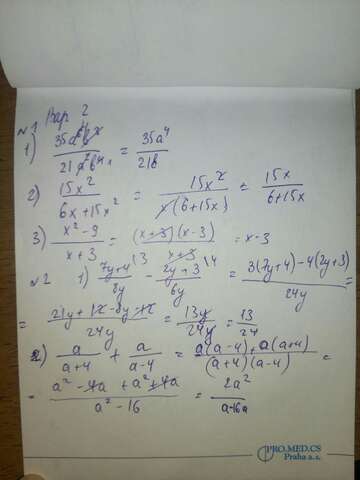 Вар 2
№1
1) 35a⁶b³/21a²b⁴ = 35a⁴/21b
2) 15x²/6x+15x² = 15x²/x(6+15x) = 15x/6+15x
3) x²-9/x+3 = (x+3)(x-3)/x+3 = x-3
№2 1) 7y+4/8y - 2y+3/6y = 3(7y+4)-4(2y+3)/24y =
= 21y+12-8y-12/24y = 13y/24y = 13/24
2) a/a+4 + a/a-4 = a(a-4)+a(a+4)/(a+4)(a-4) =
= a²-4a+a²+4a/a²-16 = 2a²/a-16a
PRO.MED.CS
Praha a.s.